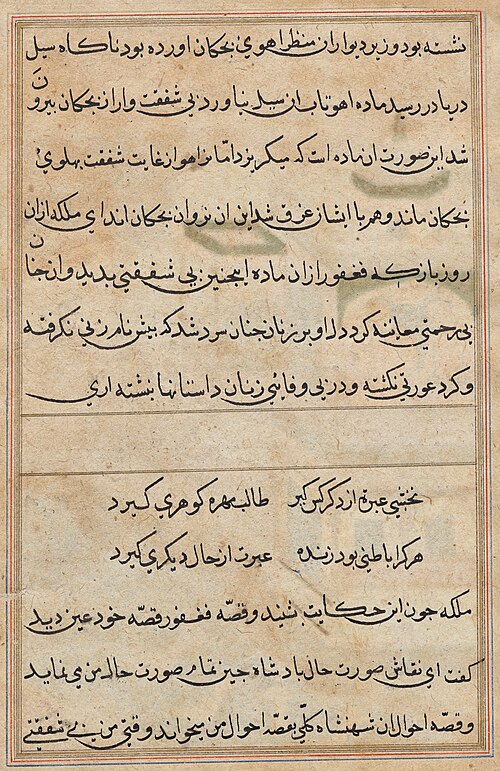 نشسته بود و زیر دیوار ان منظر اهوی بچکان اورده بود ناکاه سیل
در یاد در رسید ماده اهو تاب ان سیل نیاورد بی شفقت وار از بچکان بیرون
شد این صورت ان ماده است که میکریزد اما نر اهو از غایت شفقت پهلوی
بچکان ماند و هم با ایشان غرق شد این ان نر و ان بچکان اند ای ملکه ازان
روز باز که فغفور ازان ماده اینچنین بی شفقتی بدید و ان چنان
بی رحمتی معاینه کرد دل او بر زنان چنان سرد شد که بیش نام زنی نکرفته
و کرد عورتی نکشته و در بی وفائی زنان داستانها بنشته اری
نخشبی عبرة از دکر کس کیر طالب بهره کوهری کیرد
هر کرا باطنی بود زنده عبرت از حال دیکری کیرد
ملکه چون این حکایت بشنید و قصّه فغفور قصّه خود عین دید
کفت ای نقاش صورت حال بادشاه چین تمام صورت حال من می نماید
و قصّه احوال ان شهنشاه کلّی بقصّه احوال من میخواند وقتی من بی شفقتی